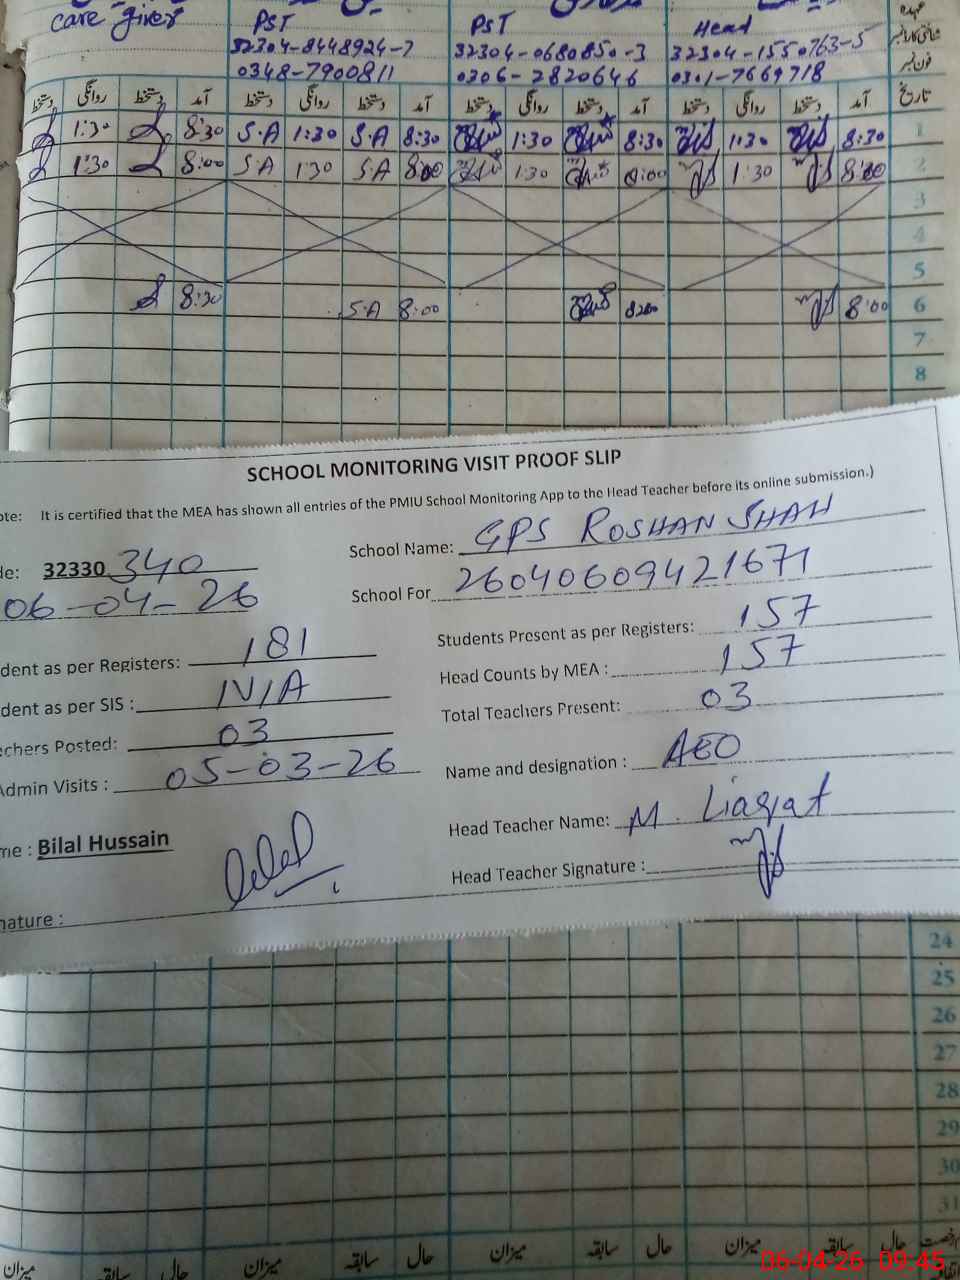 care giver PST PST Head
32304-8448924-7 32304-0680850-3 32304-1550763-5 شناختی کارڈ نمبر
0348-7900811 0306-2820646 0301-7669718 فون نمبر
دستخط روانگی دستخط آمد دستخط روانگی دستخط آمد دستخط روانگی دستخط آمد دستخط روانگی دستخط آمد تاریخ
1:30 8:30 S.A 1:30 S.A 8:30 1:30 8:30 1:30 8:30 1
1:30 8:00 S.A 1:30 S.A 8:00 1:30 8:00 1:30 8:00 2
3
4
5
8:30 S.A 8:00 8:00 8:00 6
7
8
SCHOOL MONITORING VISIT PROOF SLIP
ote: It is certified that the MEA has shown all entries of the PMIU School Monitoring App to the Head Teacher before its online submission.)
de: 32330 340 School Name: GPS ROSHAN SHAH
06-04-26 School For 26040609421671
dent as per Registers: 181 Students Present as per Registers: 157
dent as per SIS : N/A Head Counts by MEA : 157
chers Posted: 03 Total Teachers Present: 03
Admin Visits : 05-03-26 Name and designation : AEO
me : Bilal Hussain Head Teacher Name: M. Liaqat
nature : Head Teacher Signature :
24
25
26
27
28
29
30
31
میزان سابقہ حال میزان سابقہ حال میزان سابقہ حال میزان سابقہ حال
06-04-26 09:45